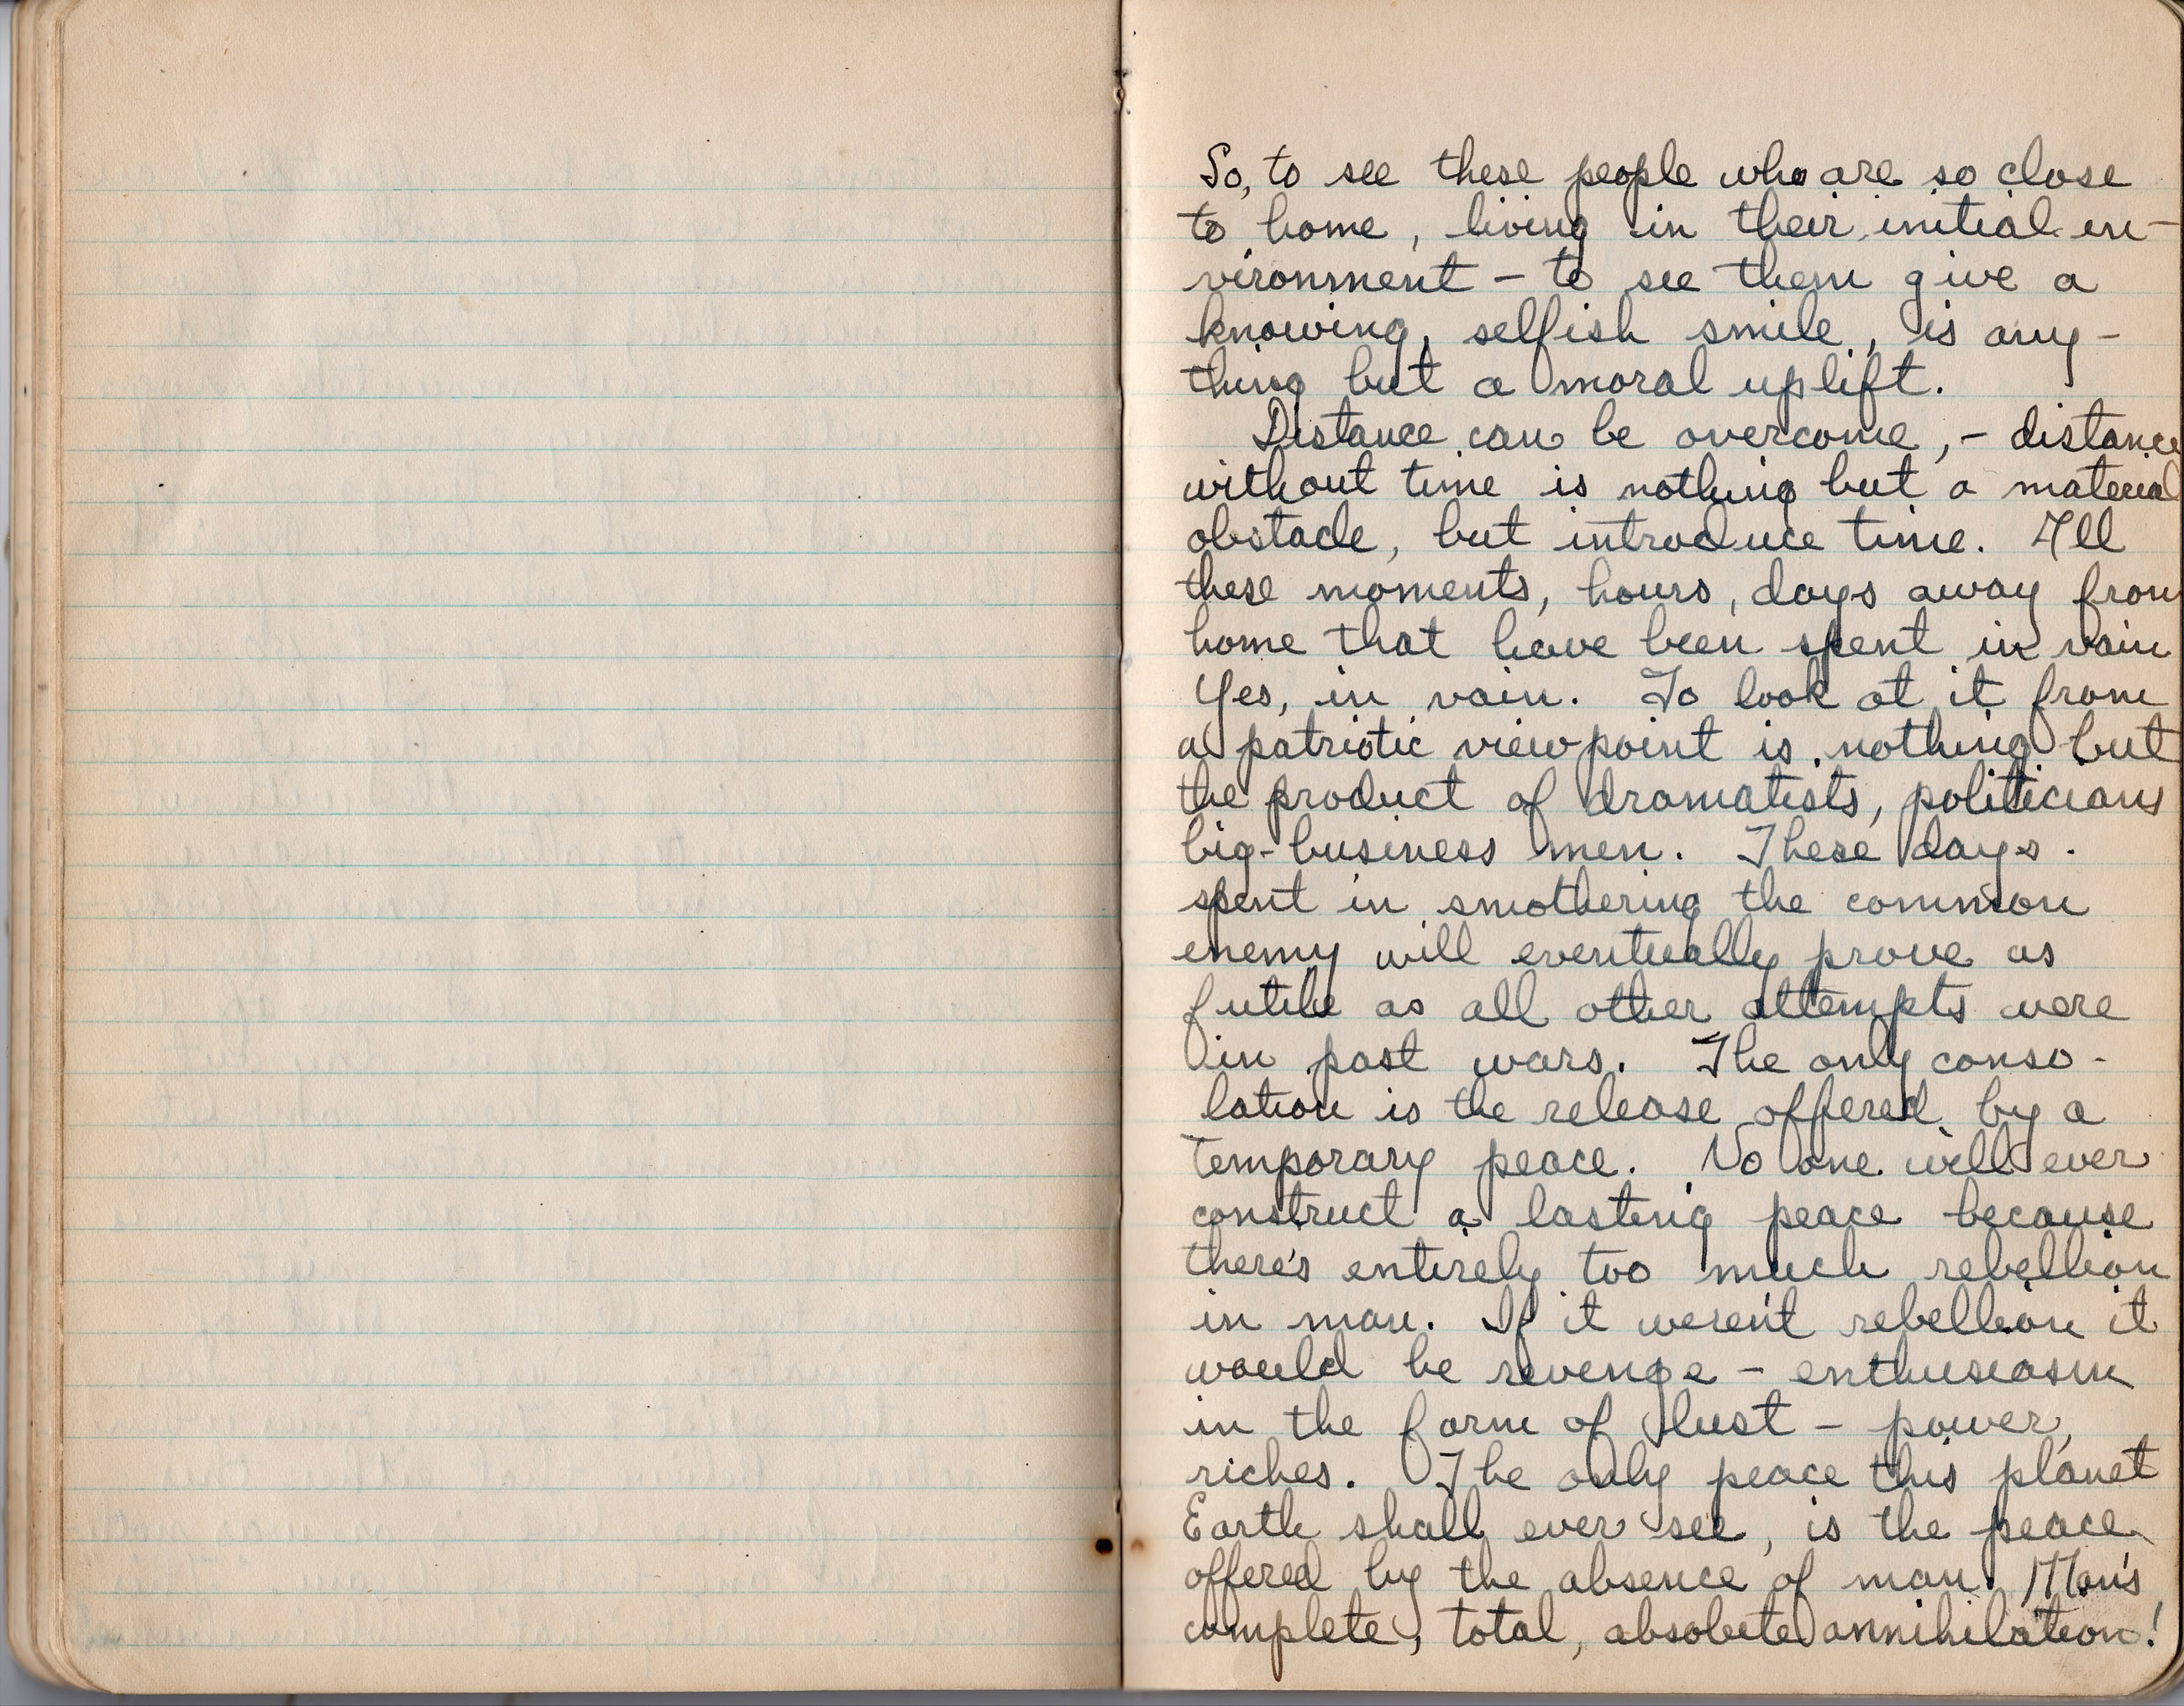 So, to see these people who are so close
to home, living in their initial en-
vironment - to see them give a
knowing, selfish smile, is any-
thing but a moral uplift.
Distance can be overcome, - distance
without time is nothing but a material
obstacle, but introduce time. All
these moments, hours, days away from
home that have been spent in vain
Yes, in vain. To look at it from
a patriotic viewpoint is nothing but
the product of dramatists, politicians
big-business men. These days
spent in smothering the common
enemy will eventually prove as
futile as all other attempts were
in past wars. The only conso-
lation is the release offered by a
temporary peace. No one will ever
construct a lasting peace because
there's entirely too much rebellion
in man. If it weren't rebellion it
would be revenge - enthusiasm
in the form of lust - power,
riches. The only peace this planet
Earth shall ever see, is the peace
offered by the absence of man. Man's
complete, total, absolute annihilation!